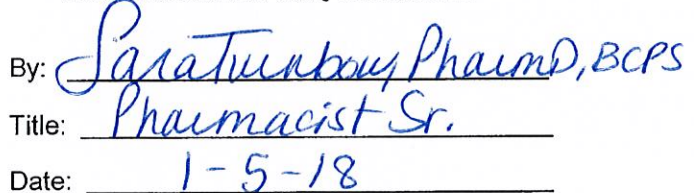 By: Sara Turnbow, PharmD, BCPS
Title: Pharmacist Sr.
Date: 1-5-18